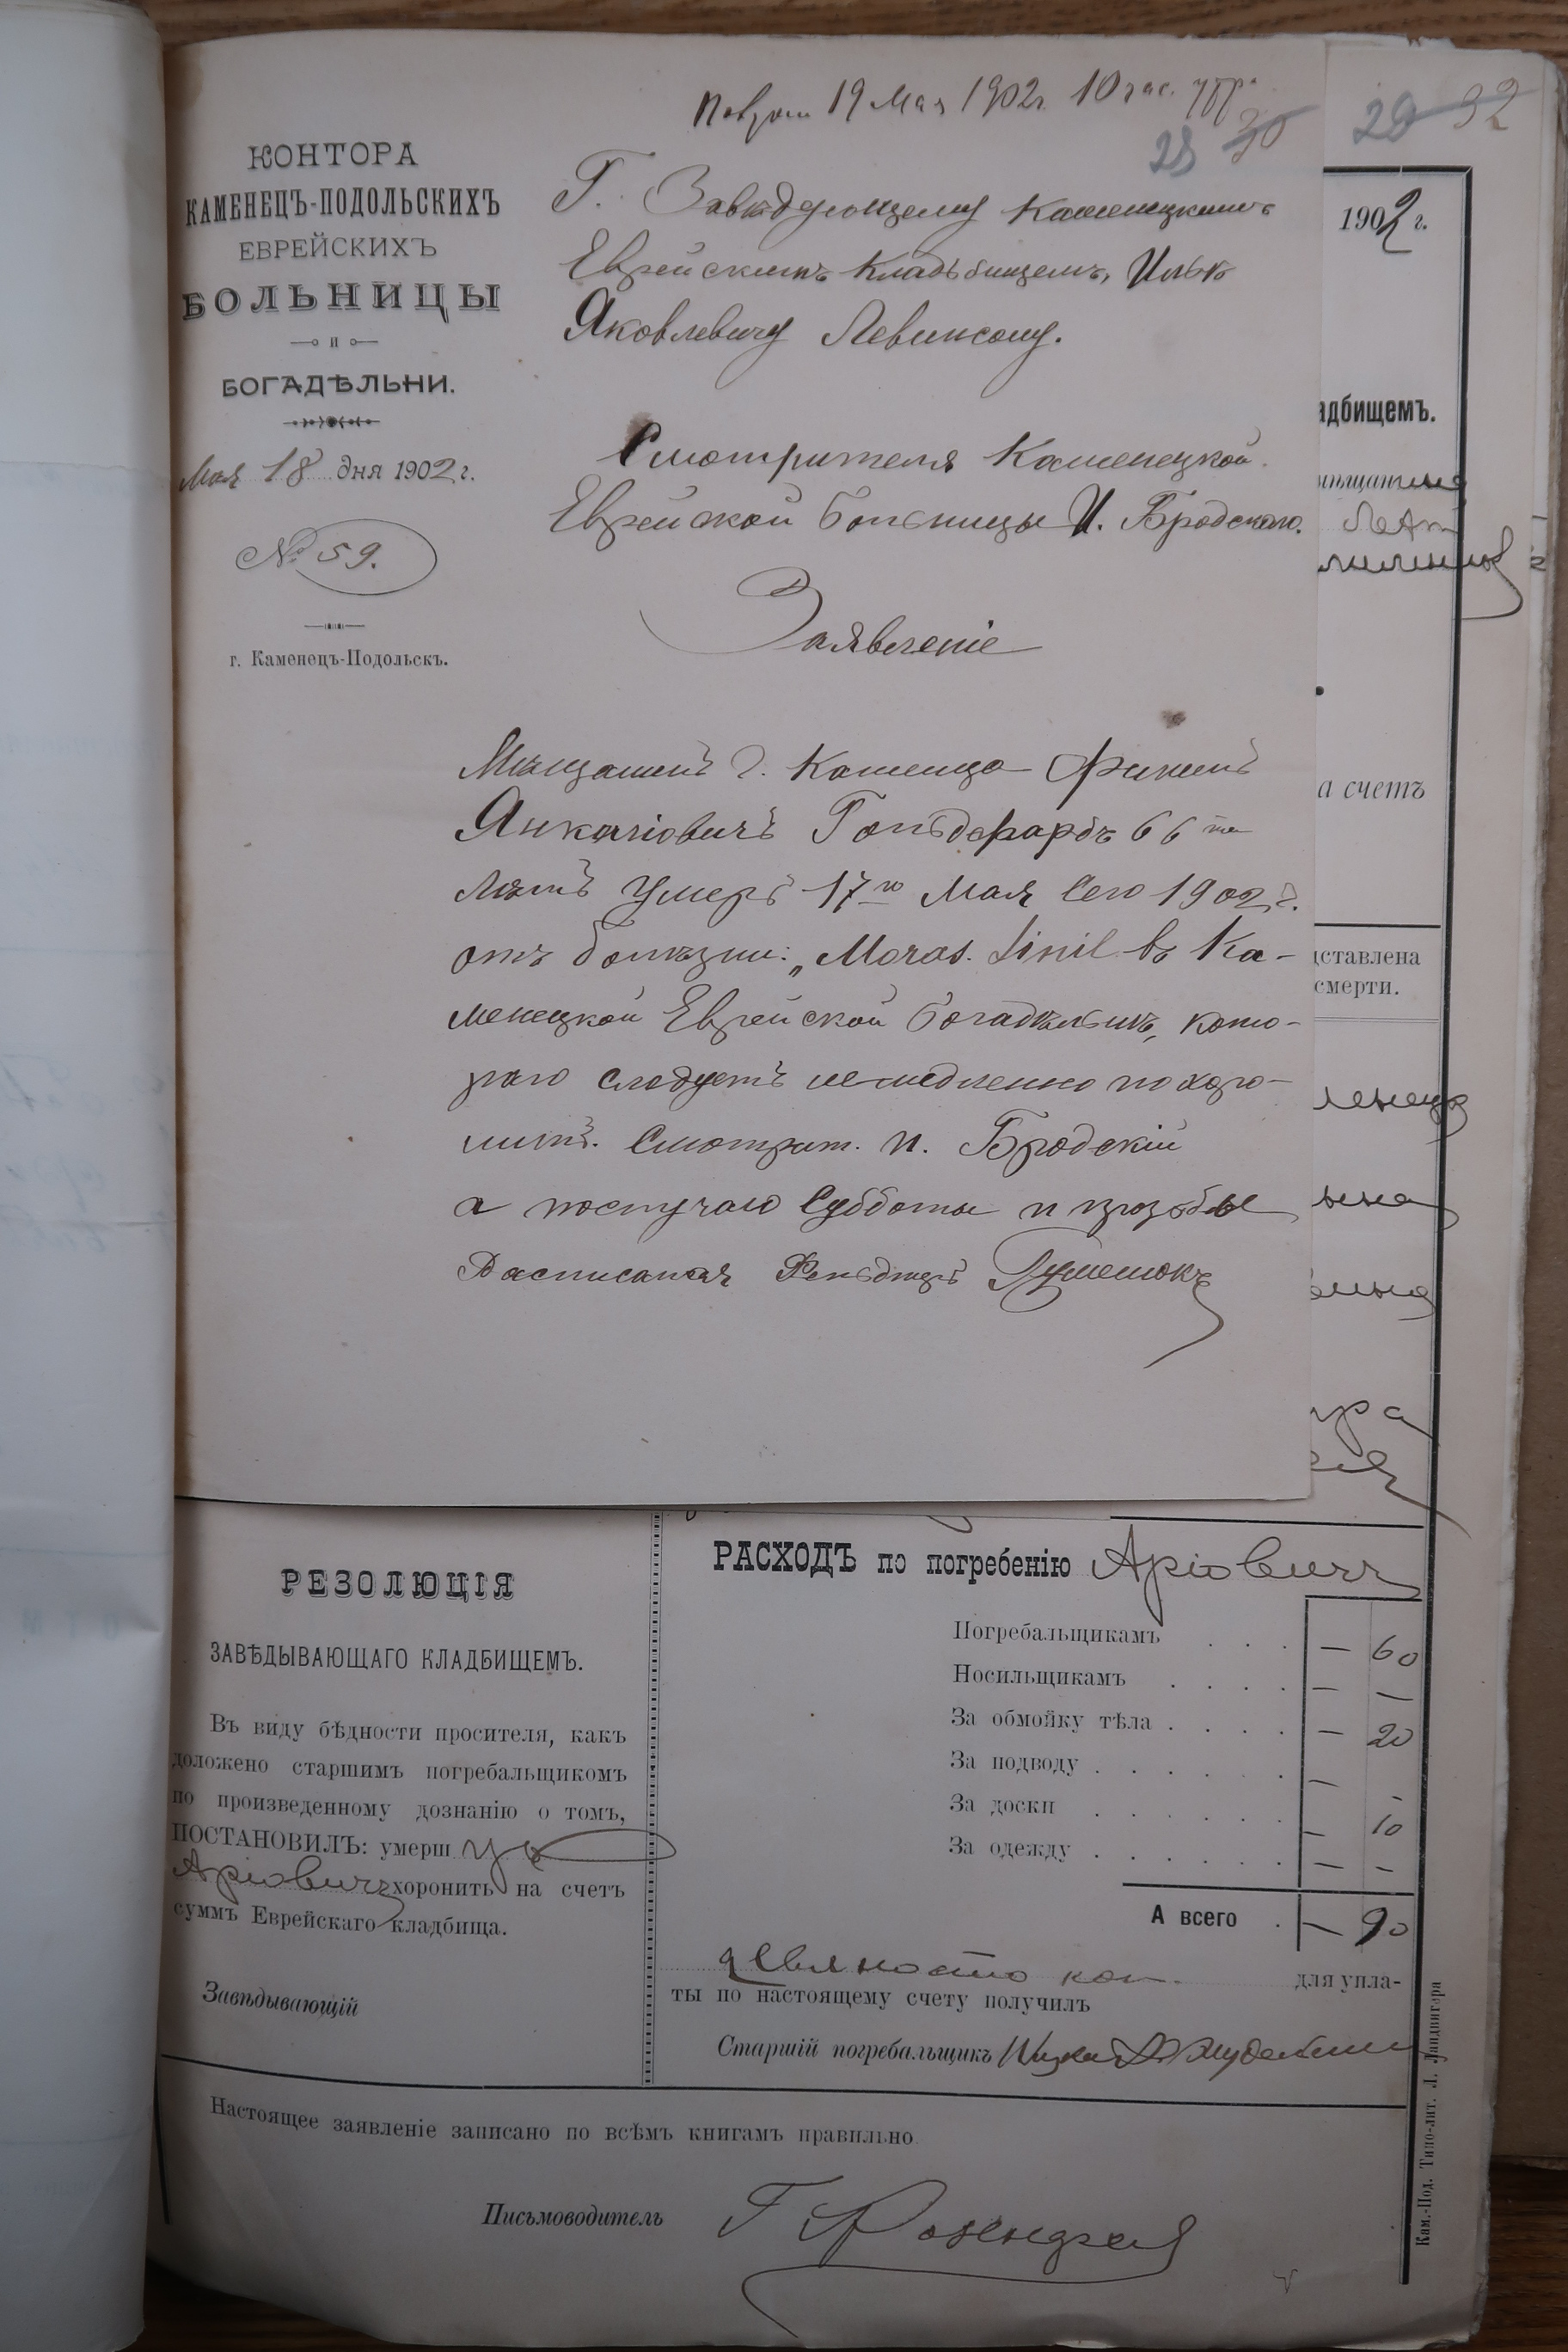 19 Мая 1902г. 10 час. утра
28 30
29 32
КОНТОРА
КАМЕНЕЦЪ-ПОДОЛЬСКИХЪ
ЕВРЕЙСКИХЪ
БОЛЬНИЦЫ
И
БОГАДѢЛЬНИ.
Мая 18 дня 1902 г.
№ 59.
г. Каменецъ-Подольскъ.
Г. Завѣдующему Каменецкимъ
Еврейскимъ Кладбищемъ,
Яковлевичу Левинсону.
Смотрителя Каменецкой
Еврейской Больницы И. Бродскаго.
Заявленіе
Мѣщанинъ г. Каменца
Янкелiовичъ Гольдфарбъ 66 ти
лѣтъ умеръ 17го Мая сего 1902 г.
отъ болѣзни: „Maras. Sinil. въ Ка-
менецкой Еврейской богадѣльнѣ, кото-
раго следуетъ немедленно похоро-
нить. Смотрит. И. Бродскій
а послучаю Субботы и
Расписался Фельдшеръ
1902 г.
адбищемъ.
а счетъ
дставлена
смерти.
РЕЗОЛЮЦІЯ
ЗАВѢДЫВАЮЩАГО КЛАДБИЩЕМЪ.
Въ виду бѣдности просителя, какъ
доложено старшимъ погребальщикомъ
по произведенному дознанію о томъ,
ПОСТАНОВИЛЪ: умерш
Аріовичъ хоронить на счетъ
суммъ Еврейскаго кладбища.
Завѣдывающій
РАСХОДЪ по погребенію Аріовичъ
Погребальщикамъ . . . — 60
Носильщикамъ . . . . — —
За обмойку тѣла . . . . — 20
За подводу . . . . . . — -
За доски . . . . . . — 10
За одежду . . . . . . — -
А всего . — 90
девяносто коп. для упла-
ты по настоящему счету получилъ
Старшій погребальщикъ
Настоящее заявленіе записано по всѣмъ книгамъ правильно
Письмоводитель Г.
Кам.-Под. Типо-лит. Л. Ландвигера